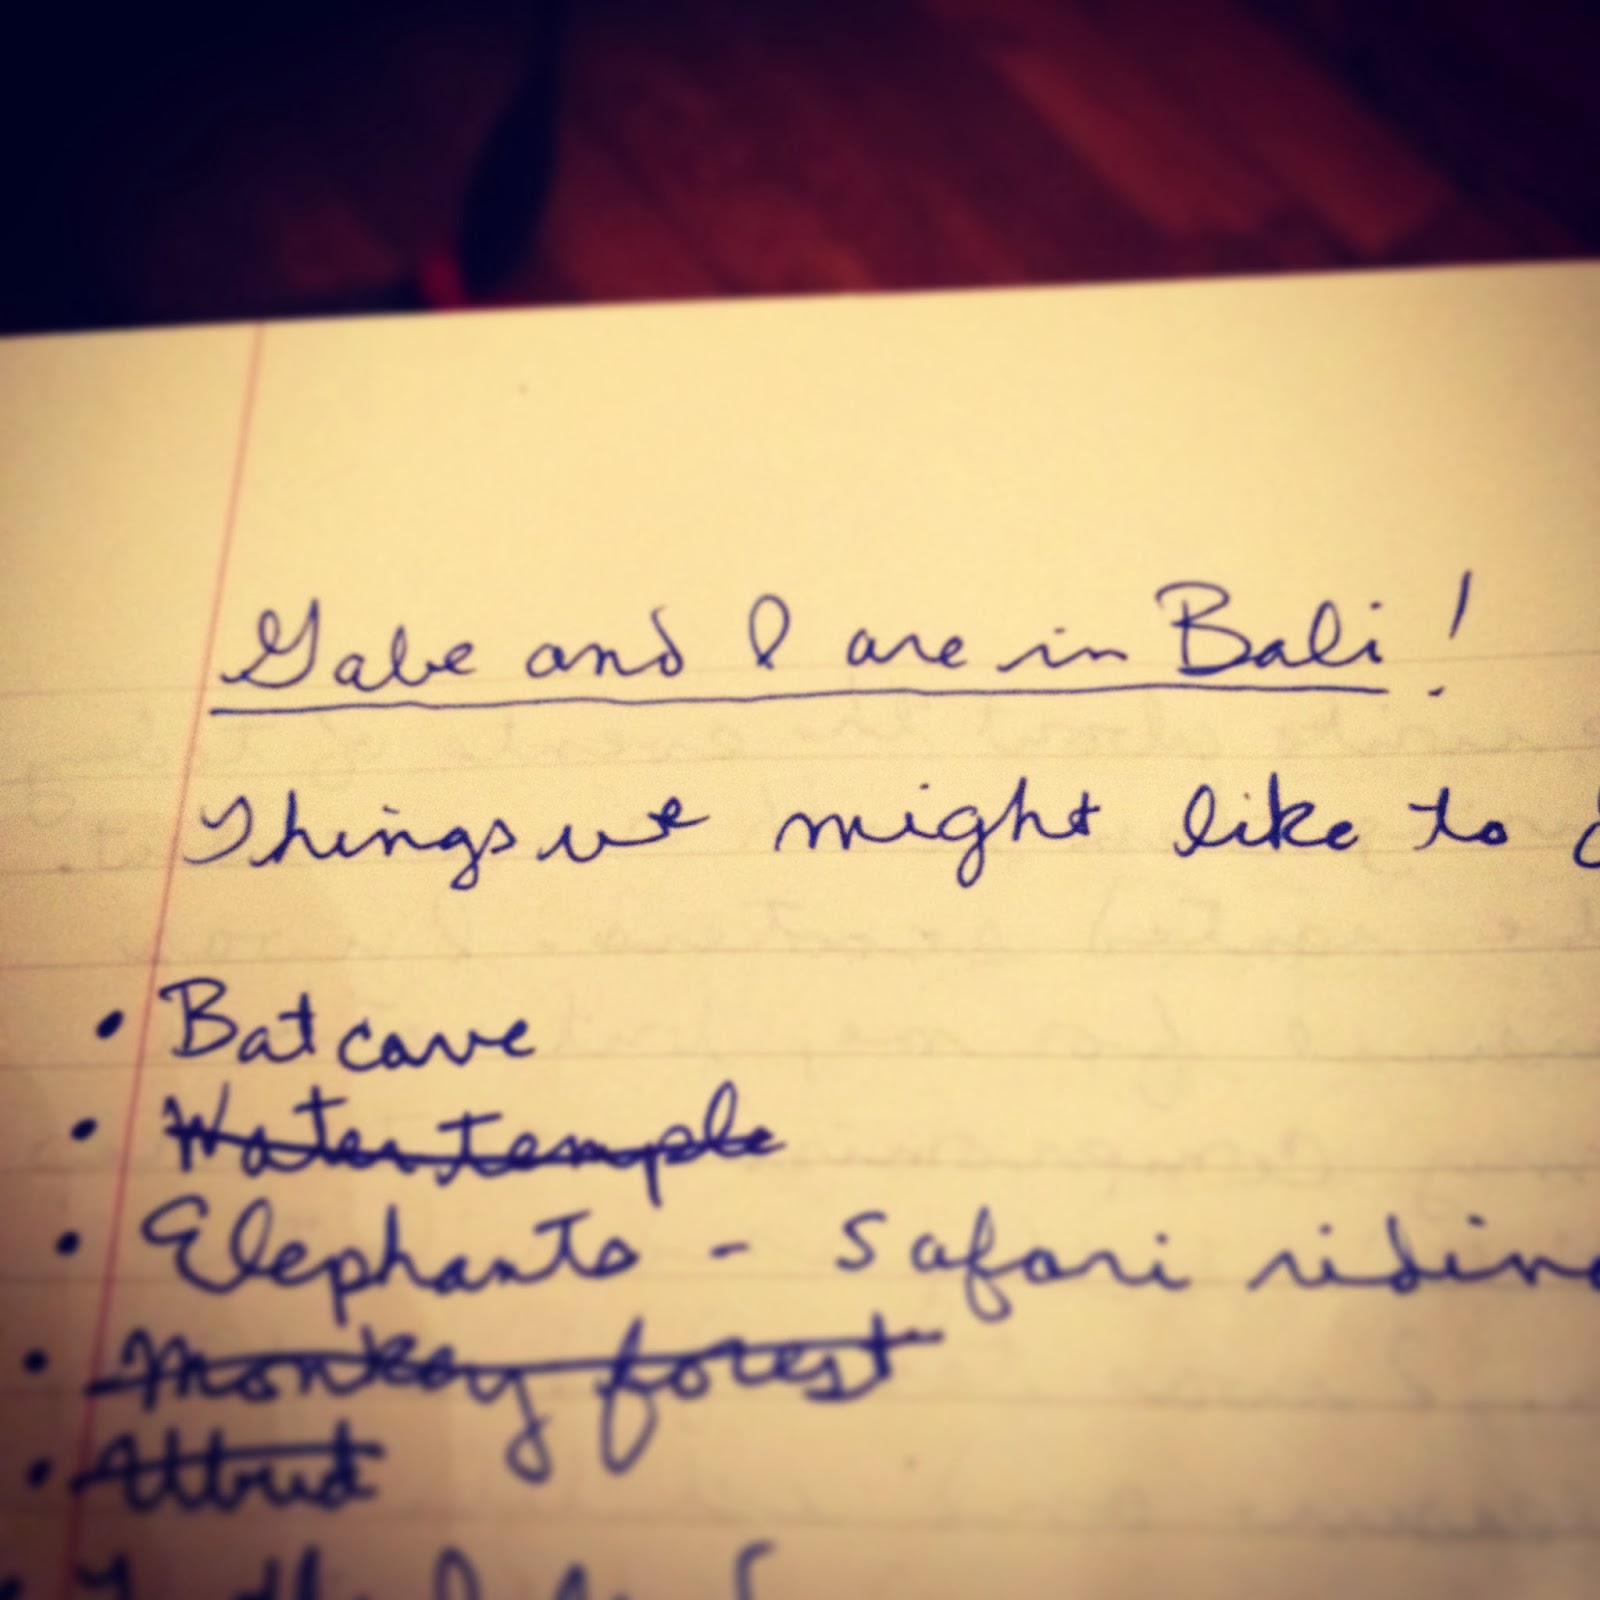 Gabe and I are in Bali!
Things we might like to
• Bat cave
• Water temple
• Elephants - safari riding
• Monkey forest
• Ubud